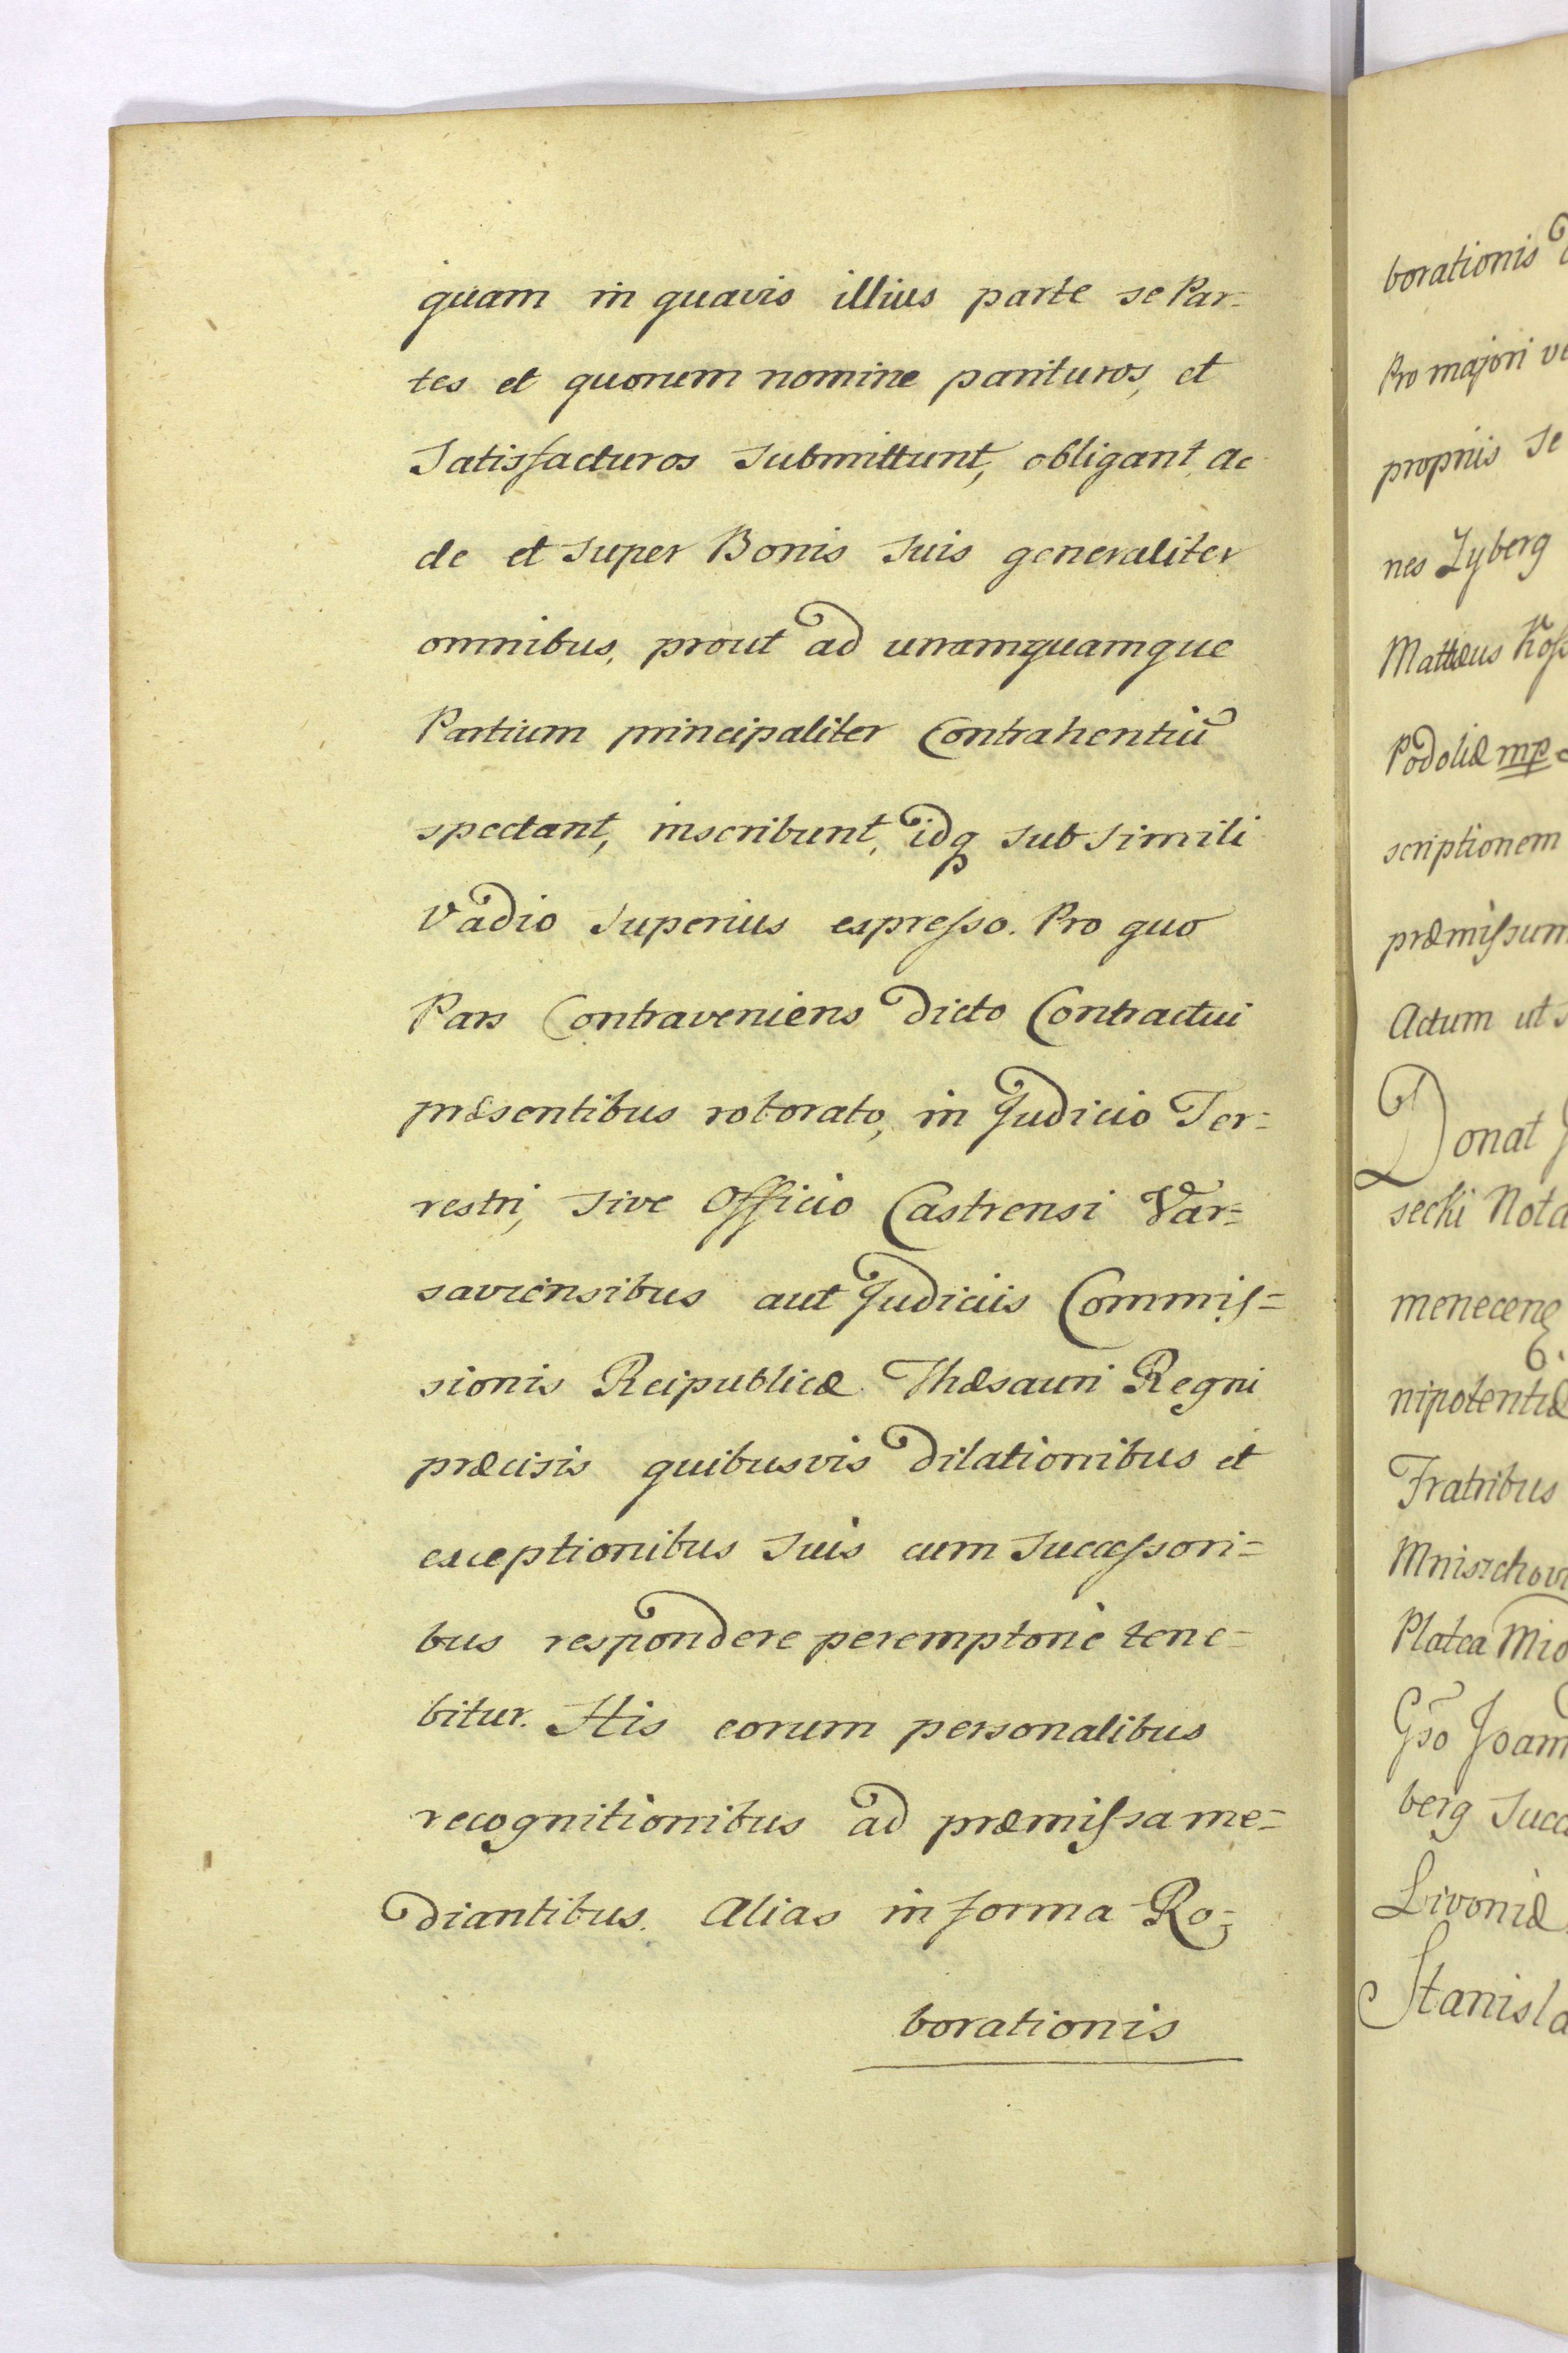 quam in quavis illius parte se Par=
tes et quorum nomine parituros, et
Satisfacturos submittunt, obligant, ac
de et super Bonis suis generaliter
omnibus, prout ad unamquamque
Partium principaliter Contrahentiũ
spectant, inscribunt, idq sub simili
Vadio superius expresso. Pro quo
Pars Contraveniens dicto Contractui
præsentibus roborato, in Judicio Ter=
restri, sive Officio Castrensi Var=
saviensibus aut Judiciis Commis=
sionis Reipublicæ Thæsauri Regni
præcisis quibusvis dilationibus et
exceptionibus suis cum successori=
bus respondere peremptorie tene=
bitur. His eorum personalibus
recognitionibus ad præmissa me=
diantibus. Alias in forma Ro=
borationis
borationis
Pro majori
propriis se
nes Zyberg
Mattheus
Podoliæ mp
scriptionem
præmissum
Actum ut
Donat
secki Nota
nipotentiæ
Fratribus
Platea
Gso Joann
berg Succ
Livoniæ
Stanisla